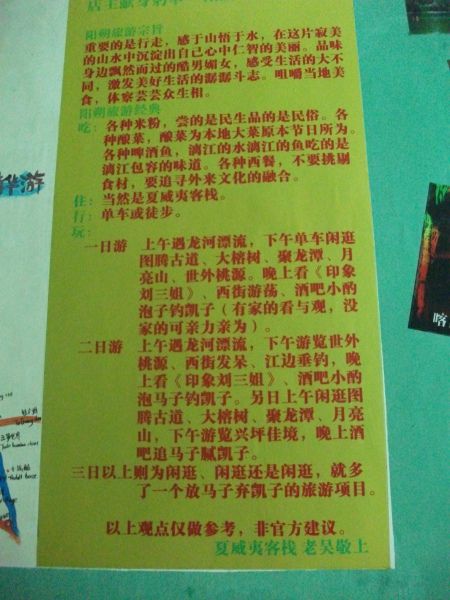 阳朔旅游宗旨
重要的是行走，感于山悟于水，在这片寂美
的山水中沉淀出自己心中仁智的美丽。品味
身边飘然而过的酷男媚女，感受生活的大不
同，激发美好生活的潺潺斗志。咀嚼当地美
食，体察芸芸众生相。
阳朔旅游经典
吃：各种米粉，尝的是民生品的是民俗。各
种酿菜，酿菜为本地大菜原本节日所为。
各种啤酒鱼，漓江的水漓江的鱼吃的是
漓江包容的味道。各种西餐，不要挑剔
食材，要追寻外来文化的融合。
住：当然是夏威夷客栈。
行：单车或徒步。
玩：
一日游 上午遇龙河漂流，下午单车闲逛
图腾古道、大榕树、聚龙潭、月
亮山、世外桃源。晚上看《印象
刘三姐》、西街游荡、酒吧小酌
泡子钓凯子（有家的看与观，没
家的可亲力亲为）。
二日游 上午遇龙河漂流，下午游览世外
桃源、西街发呆、江边垂钓，晚
上看《印象刘三姐》、酒吧小酌
泡马子钓凯子。另日上午闲逛图
腾古道、大榕树、聚龙潭、月亮
山，下午游览兴坪佳境，晚上酒
吧追马子腻凯子。
三日以上则为闲逛、闲逛还是闲逛，就多
了一个放马子弃凯子的旅游项目。
以上观点仅做参考，非官方建议。
夏威夷客栈 老吴敬上